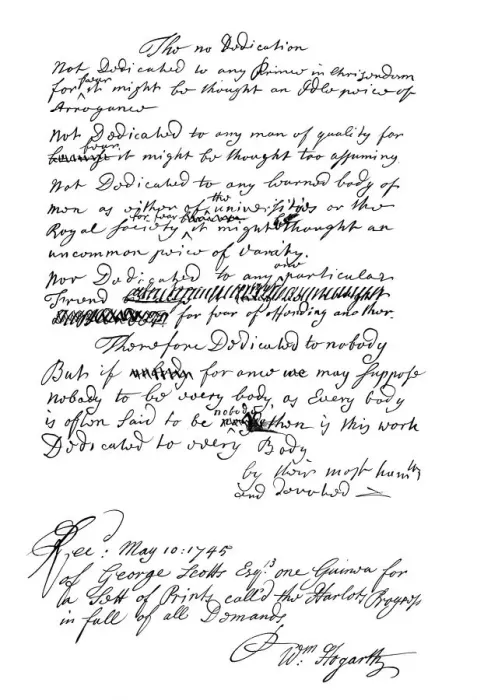 The no Dedication
Not Dedicated to any Prince in Christendom
for fear it might be thought an Idle peice of
Arrogance
Not Dedicated to any man of quality for
fear it might be thought too assuming
Not Dedicated to any learned body of
men as either of the universities or the
Royal Society for fear it might be thought an
uncommon peice of Vanity.
Nor Dedicated to any one particular
Freind
for fear of offending another.
Therefore Dedicated to nobody
But if for once we may suppose
nobody to be every body as Every body
is often said to be nobody then is this work
Dedicated to every Body
by their most humble
and devoted
Rec.d May 10: 1745
of George Scotts Esq.r one Guinea for
a Sett of Prints call'd the Harlots Progress
in full of all Demands
Wm Hogarth